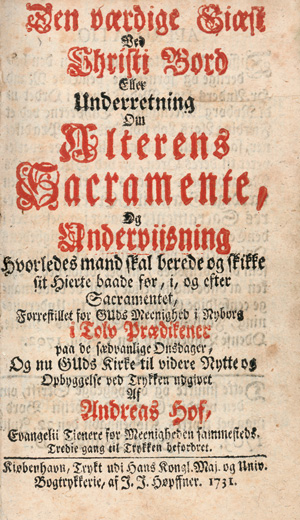 Den værdige Giæst
Ved
Christi Bord
Eller
Underretning
Om
Alterens
Sacramente,
Og
Underviisning
Hvorledes mand skal berede og skikke
sit Hierte baade før, i, og efter
Sacramentet,
Forrestillet for GUds Meenighed i Nyborg
i Tolv Prædikener
paa de sædvanlige Onsdager,
Og nu GUds Kirke til videre Nytte og
Opbyggelse ved Trykken udgivet
Af
Andreas Hof,
Evangelii Tienere for Meenigheden sammesteds.
Tredie gang til Trykken befordret.
Kiøbenhavn, Trykt udi Hans Kongl. Maj. og Univ.
Bogtrykkerie, af J. J. Høpffner. 1731.